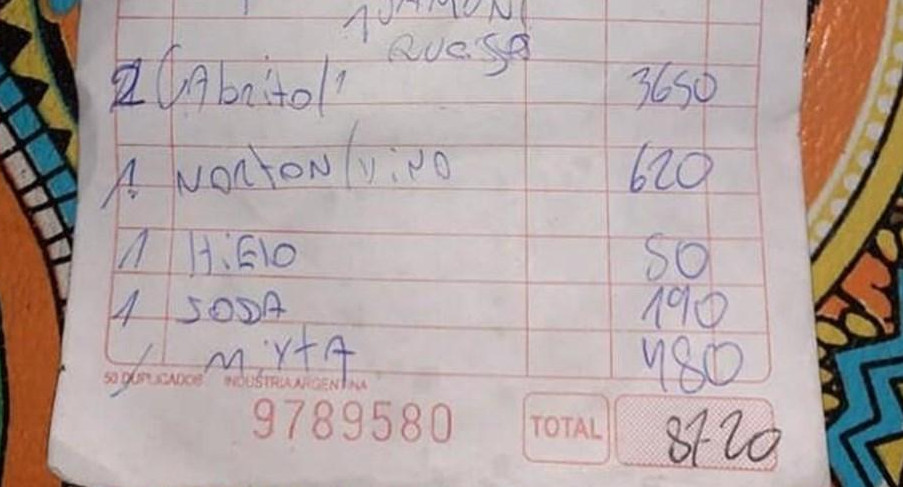 1 JAMON
QUESO
2 CAbrito/1 3650
1 NORTON/ViNO 620
1 HiElO 50
1 SODA 190
1 MiXTA 480
50 DUPLICADOS INDUSTRIA ARGENTINA
9789580 TOTAL 8720